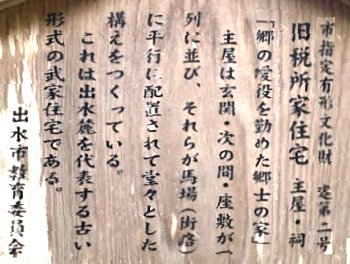 市指定有形文化財 定第二号
旧税所家住宅 主屋・祠
「郷の噯役を勤めた郷士の家」
主屋は玄関、次の間・座敷が一
列に並び、それらが馬場（街路）
に平行に配置されて堂々とした
構えをつくっている。
これは出水麓を代表する古い
形式の武家住宅である。
出水市教育委員会